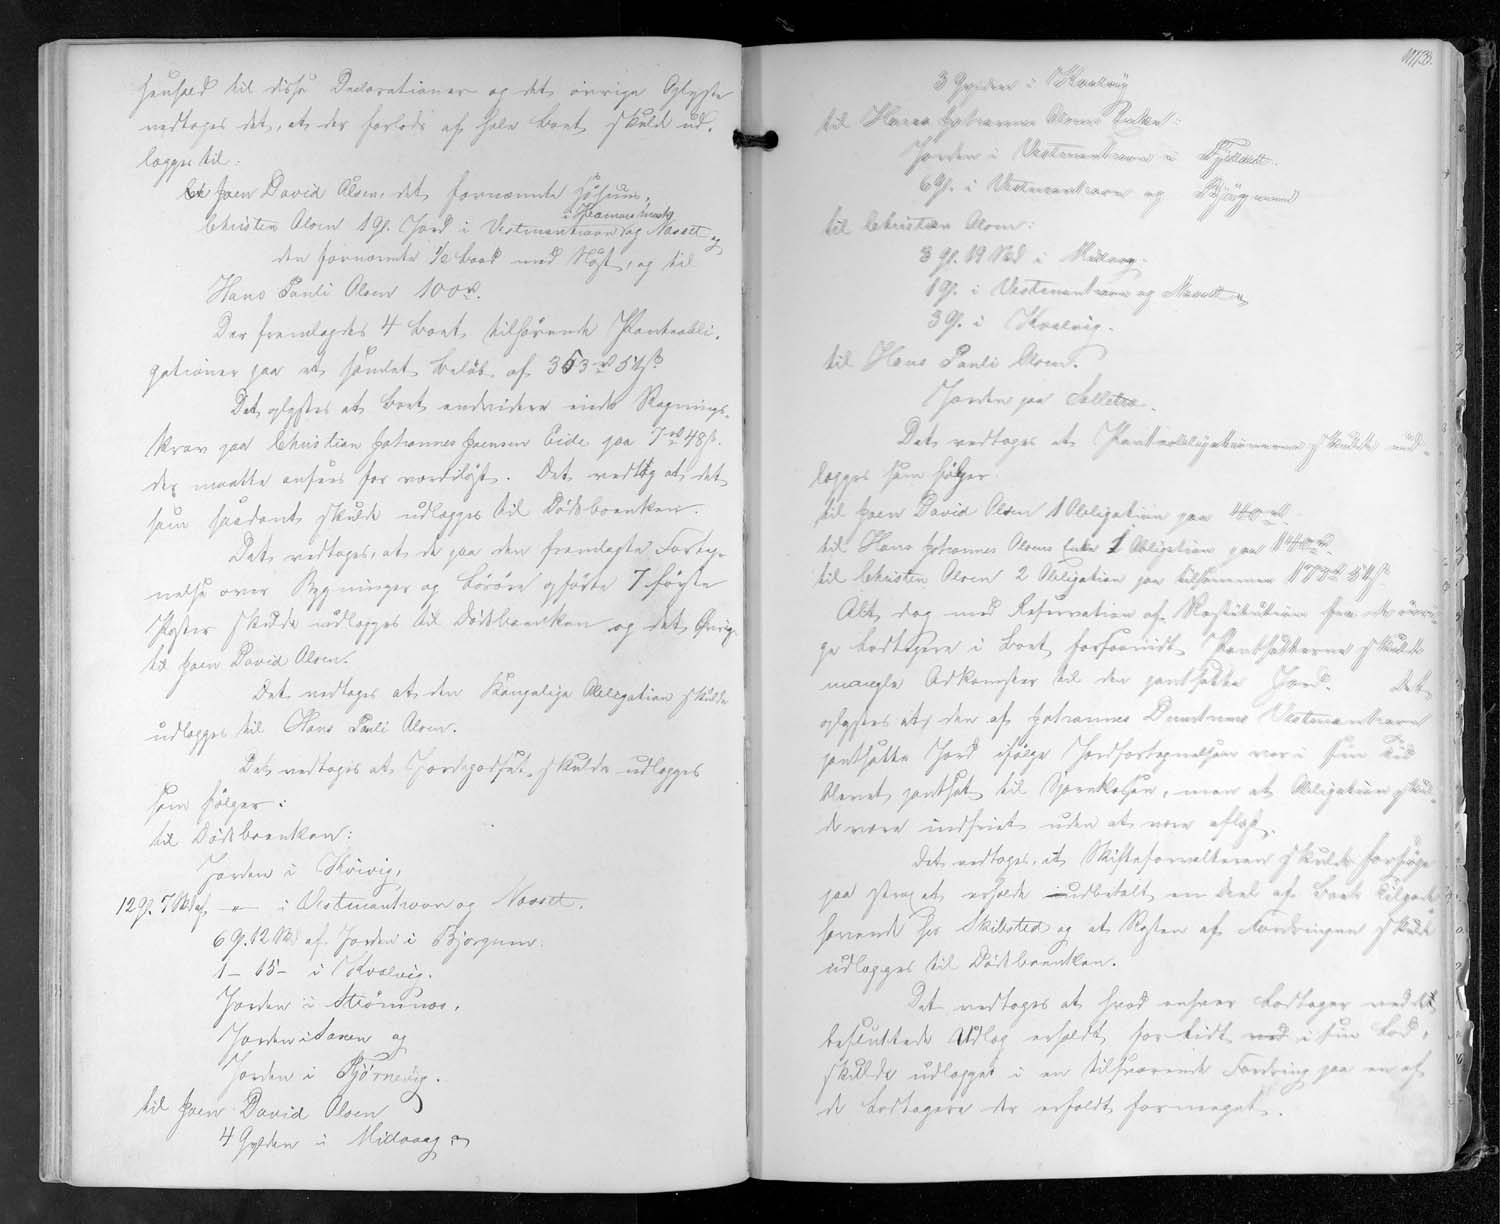 henhold til disse Declarationer og det øvrige Oplyste
vedtoges det, at der forlods af hele Boet skulde ud-
lægges til:
Joen David Olsen, det fornævnte
Christen Olsen 1 Gl. Jord i Vestmanhavn og Nasset og
den fornævnte 1/2 Baad med Nøst, og til
Hans Pauli Olsen 100 rd.
Der fremlagdes 4 Boet tilhørende Panteobli-
gationer paa et samlet Beløb af 353 rd 54 ß
Det oplystes at Boet endvidere eiede Regnings-
krav paa Christian Johannes Joensen Eide paa 7 rd 48 ß.
der maatte ansees for værdiløst. Det vedtog at det
som saadant skulde udlægges til Dødsboenken.
Det vedtoges, at de paa den fremlagte Forteg-
nelse over Bygninger og Løsøre opførte 7 første
Poster skulde udlægges til Dødsboenken og det Øvrige
til Joen David Olsen.
Det vedtoges at den Kongelige Obligation skulde
udlægges til Hans Pauli Olsen.
Det vedtoges at Jordegodset skulde udlægges
som følger:
til Dødsboenken:
Jorden i Kvivig,
12 Gl. 7 Skd af — " — i Vestmanhavn og Nasset.
6 Gl. 12 Skd. af Jorden i Bjørgum
1 — 15 — i Kvalvig.
Jorden i Strømnæs.
Jorden i Saxen og
Jorden i Bjørnevig.
til Joen David Olsen
4 Gylden i Midvaag og
3 Gylden i Kvalvig
til Hans Johannes Olsens Enke:
Jorden i Vestmanhavn i
6 Gl. i Vestmanhavn og
til Christen Olsen:
3 Gl. 19 Skd i Midvaag.
1 Gl. i Vestmanhavn og Nasset og
3 Gl. i Kvalvig.
til Hans Pauli Olsen.
Jorden paa Selletræ.
Det vedtoges at Panteobligationerne skulde ud-
lægges som følger.
til Joen David Olsen 1 Obligation paa 40 rd.
til Hans Johannes Olsens Enke 1 Obligation paa 140 rd.
til Christen Olsen 2 Obligation paa tilsammen 173 rd 54 ß
Alt dog med Reservation af Restitution fra de øvri-
ge Lodtagere i Boet forsaavidt Pantsætterne skulde
mangle Adkomster til den pantsatte Jord. Det
oplystes at den af Johannes Vestmanhavn
pantsatte Jord ifølge Jordfortegnelsen var i sin Tid
blevet pantsat til Sparekassen, men at Obligation skul-
de være indfriet uden at være aflyst.
Det vedtoges, at Skifteforvalteren skulde forsøge
paa strax at erholde udbetalt en Deel af Boets Tilgode-
havende hos Skibsted og at Resten af Fordringen skulde
udlægges til Dødsboenken.
Det vedtoges at hvad enhver Lodtager ved det
besluttede Udlæg erholdt for lidt ved i sin Lod,
skulde udlægges i en tilsvarende Fordring paa en af
de Lodtagere der erholdt formeget.